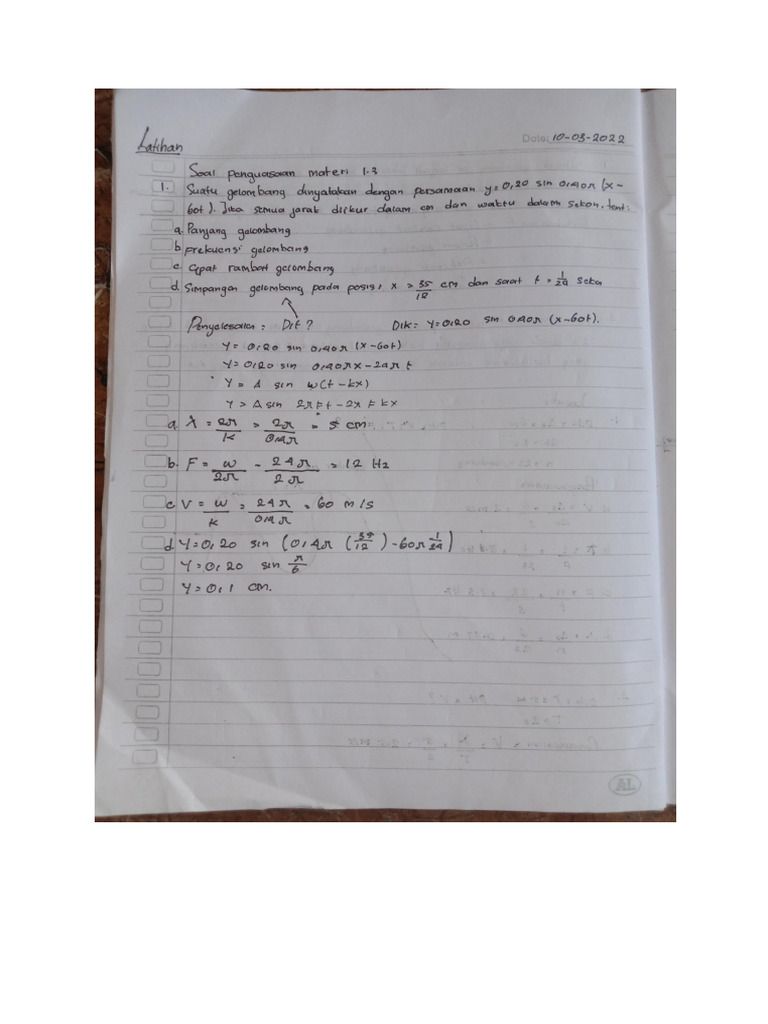 Latihan
Date: 10-03-2022
Soal penguasaan materi 1.3
1. Suatu gelombang dinyatakan dengan persamaan y=0,20 sin 0,40π (x-
60t). Jika semua jarak diukur dalam cm dan waktu dalam sekon. tent:
a. Panjang gelombang
b. Frekuensi gelombang
c. Cepat rambat gelombang
d. Simpangan gelombang pada posisi x = 35/12 cm dan saat t = 1/24 seko
Penyelesaian : Dit ? Dik = Y=0,20 sin 0,40π (x-60t).
Y= 0,20 sin 0,40π (x-60t)
Y= 0,20 sin 0,40πx-24π t
Y = A sin w(t-kx)
Y = A sin 2πft-2x f kx
a. λ = 2π/k = 2π/0,4π = 5 cm
b. F = w/2π = 24π/2π = 12 Hz
c. V = w/k = 24π/0,4π = 60 m/s
d. Y=0,20 sin (0,4π (35/12) -60π 1/24)
Y=0,20 sin π/6
Y=0,1 cm.
AL